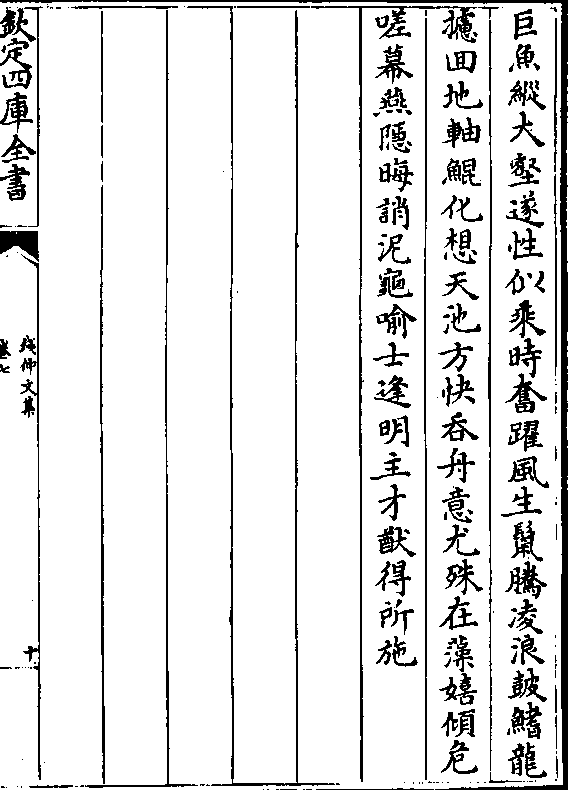 巨魚縱大壑遂性似乘時奮躍風生鬛騰凌浪皷鰭龍
攄囬地軸鯤化想天池方快吞舟意尤殊在藻嬉傾危
嗟幕燕隱晦誚泥龜喻士逢明主才猷得所施
欽定四庫全書
錢仲文集
卷七
十